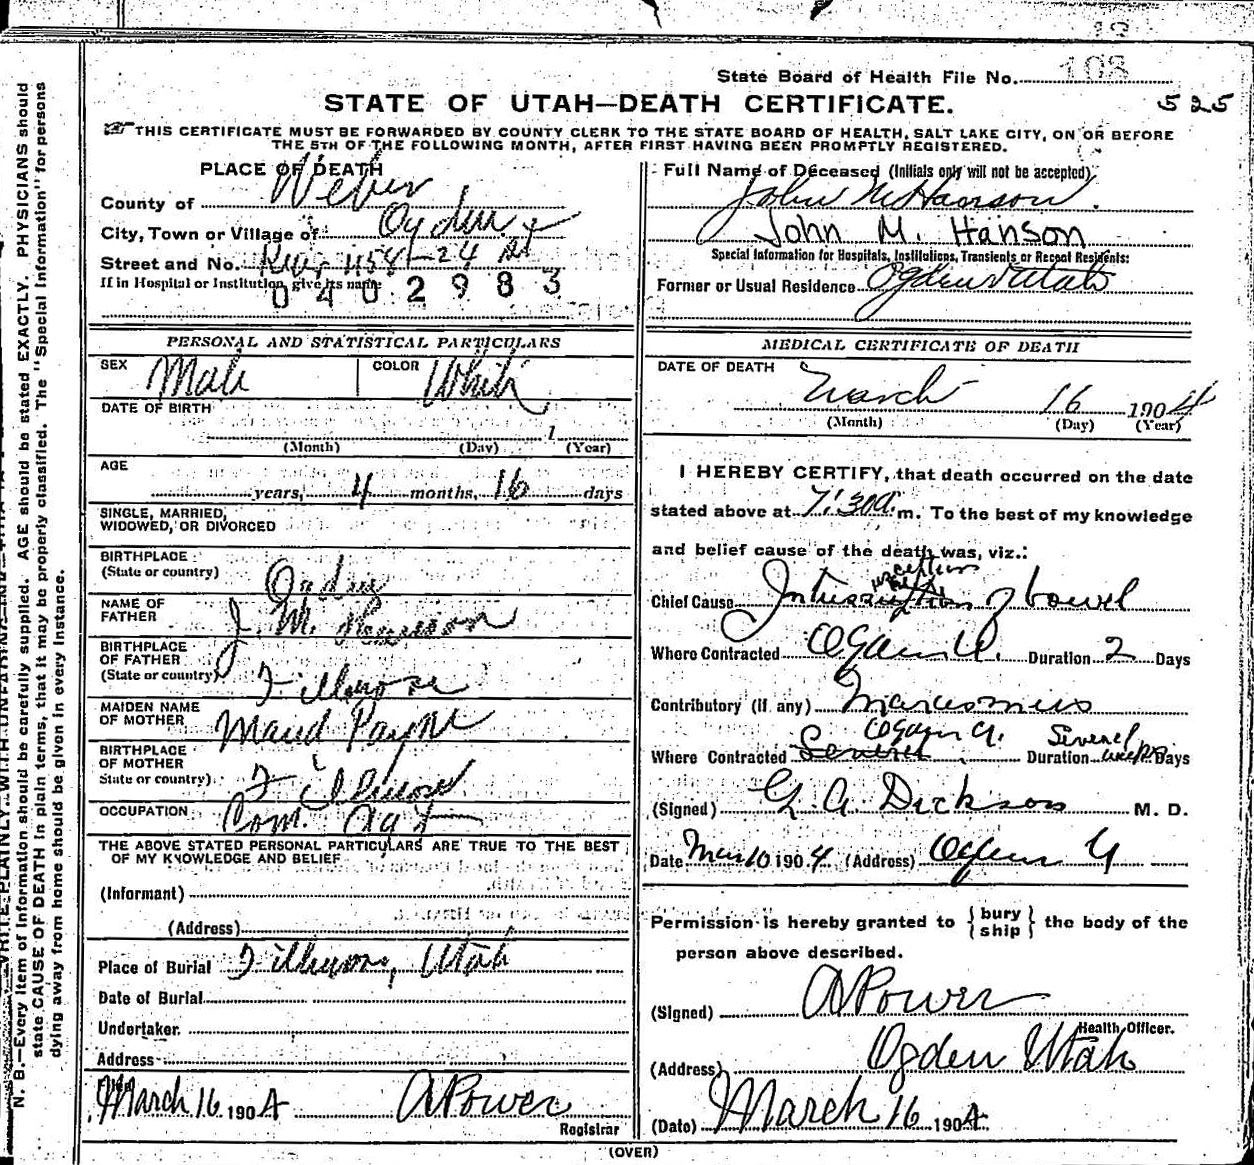 State Board of Health File No. 108
STATE OF UTAH—DEATH CERTIFICATE.
525
THIS CERTIFICATE MUST BE FORWARDED BY COUNTY CLERK TO THE STATE BOARD OF HEALTH, SALT LAKE CITY, ON OR BEFORE
THE 5TH OF THE FOLLOWING MONTH, AFTER FIRST HAVING BEEN PROMPTLY REGISTERED.
PLACE OF DEATH
County of Weber
City, Town or Village of Ogden
Street and No. 1158-24 St
If in Hospital or Institution, give its name
0402983
Full Name of Deceased (Initials only will not be accepted)
John M Hanson.
John M. Hanson
Special Information for Hospitals, Institutions, Transients or Recent Residents:
Former or Usual Residence Ogden Utah
PERSONAL AND STATISTICAL PARTICULARS
SEX Male COLOR White
DATE OF BIRTH
1
(Month) (Day) (Year)
AGE
years, 4 months, 16 days
SINGLE, MARRIED,
WIDOWED, OR DIVORCED
BIRTHPLACE
(State or country) Ogden
NAME OF
FATHER J. M. Hanson
BIRTHPLACE
OF FATHER
(State or country) Fillmore
MAIDEN NAME
OF MOTHER Maud Payne
BIRTHPLACE
OF MOTHER
State or country) Fillmore
OCCUPATION Com. Agt
THE ABOVE STATED PERSONAL PARTICULARS ARE TRUE TO THE BEST
OF MY KNOWLEDGE AND BELIEF
(Informant)
(Address)
Place of Burial Fillmore, Utah
Date of Burial
Undertaker
Address
Filed March 16 1904 A Power
Registrar
MEDICAL CERTIFICATE OF DEATH
DATE OF DEATH
March 16 1904
(Month) (Day) (Year)
I HEREBY CERTIFY, that death occurred on the date
stated above at 7:30 a. m. To the best of my knowledge
and belief cause of the death was, viz.:
Chief Cause of bowel
Where Contracted Ogden U. Duration 2 Days
Contributory (if any) Marasmus
Where Contracted Ogden U. Duration Several Days
(Signed) G. A. Dickson M. D.
Date Mar 10 1904 (Address) Ogden U
Permission is hereby granted to {bury
ship} the body of the
person above described.
(Signed) A Power
Health Officer.
(Address) Ogden Utah
(Date) March 16 1904
(OVER)
N. B.—Every item of information should be carefully supplied. AGE should be stated EXACTLY. PHYSICIANS should
state CAUSE OF DEATH in plain terms, that it may be properly classified. The "Special Information" for persons
dying away from home should be given in every instance.